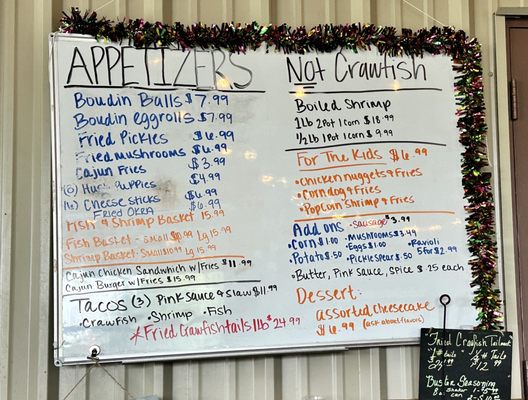 APPETIZERS
Boudin Balls $7.99
Boudin eggrolls $7.99
Fried Pickles $6.99
Fried Mushrooms $6.99
Cajun Fries $3.99
Hush Puppies $4.99
Cheese sticks $6.99
Fried Okra $6.99
Fish & Shrimp Basket 15.99
Fish Basket - Small $9.99 Lg 15.99
Shrimp Basket - Small $10.99 Lg 15.99
Cajun Chicken Sandwhich w/Fries $11.99
Cajun Burger w/Fries $15.99
Tacos (3) Pink Sauce & Slaw $11.99
•Crawfish •Shrimp •Fish
*Fried Crawfish tails 1lb $24.99
Not Crawfish
Boiled Shrimp
1lb 2 Pot 1 Corn $18.99
½lb 1 Pot 1 Corn $9.99
For The Kids $6.99
•Chicken nuggets & Fries
•Corndog & Fries
•Popcorn Shrimp & Fries
Add ons •Sausage $3.99
•Corn $1.00 •Mushrooms $3.49
•Eggs $1.00 •Ravioli
•Potato $.50 •Pickle Spear $.50 5 for $2.99
•Butter, Pink Sauce, Spice $.25 each
Dessert:
assorted Cheesecake
$6.99 (ask about flavors)
Fried Crawfish Tail
1# tails ½# Tails
$12
Seasoning